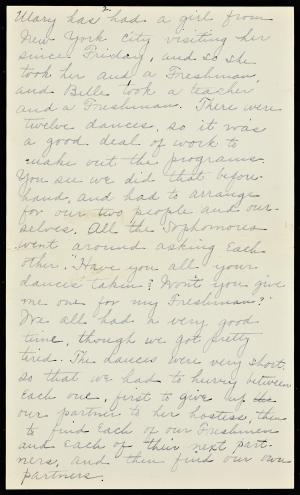 2
Mary has had a girl from
New York City visiting her
since Friday, and so she
took her and a Freshman,
and Belle took a teacher
and a Freshman. There were
twelve dances, so it was
a good deal of work to
make out the programs.
You see we did that before-
hand, and had to arrange
for our two people and our-
selves. All the Sophomores
went around asking each
other, "Have you all your
dances taken? Won't you give
me one for my Freshman?"
We all had a very good
time, though we got pretty
tired. The dances were very short,
so that we had to hurry between
each one, first to give up the
our partner to her hostess, then
to find each of our Freshmen
and each of their next part-
ners, and then find our own
partners.